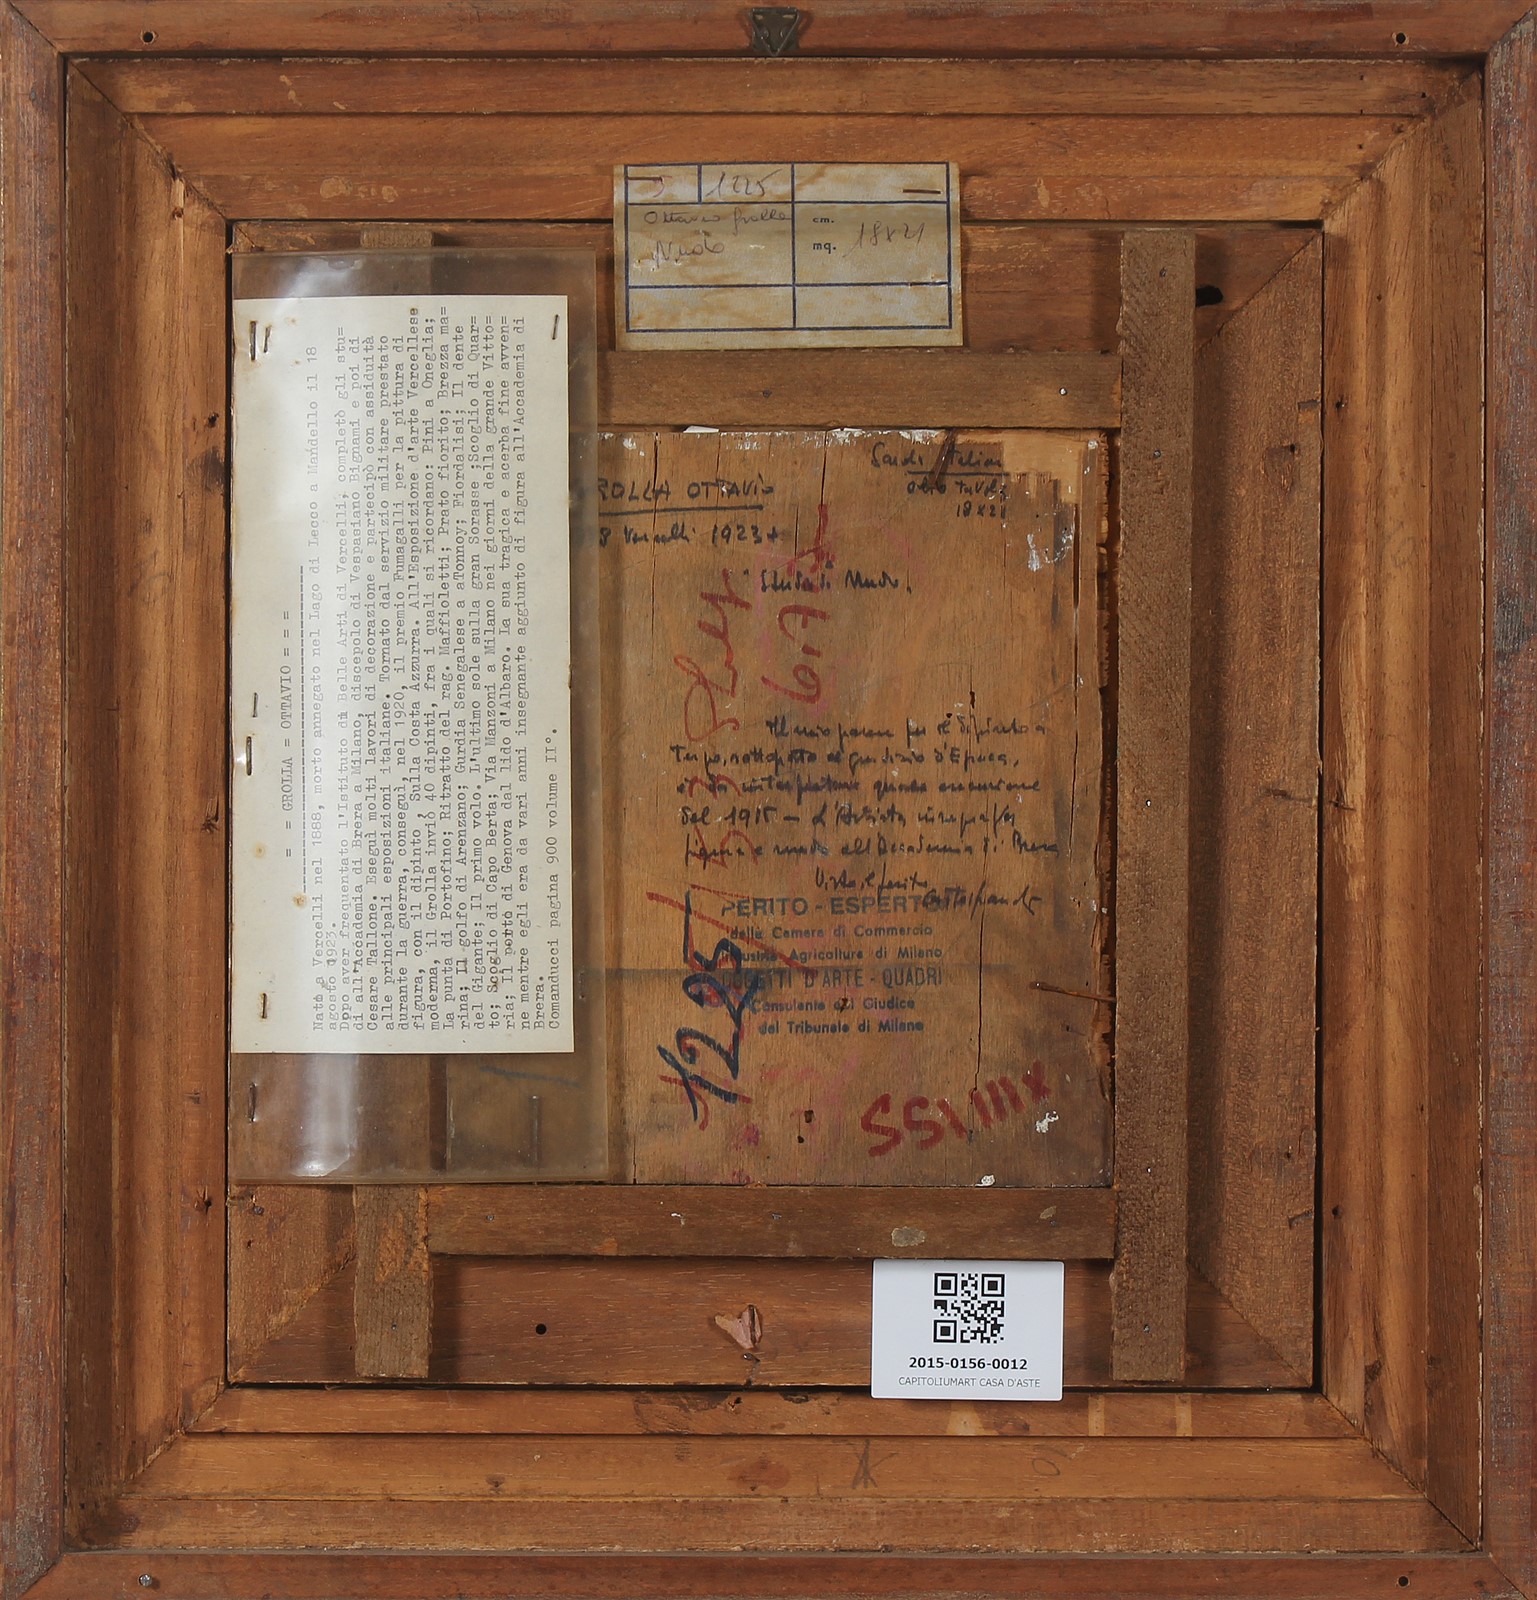 5 1225
Ottavio Grolla
Nudo
cm.
mq. 18x21
= = GROLLA = OTTAVIO = = =
Nato a Vercelli nel 1888, morto annegato nel Lago di Lecco a Mandello il 18
agosto 1923.
Dopo aver frequentato l'Istituto di Belle Arti di Vercelli, completò gli stu=
di all'Accademia di Brera a Milano, discepolo di Vespasiano Bignami e poi di
Cesare Tallone. Eseguì molti lavori di decorazione e partecipò con assiduità
alle principali esposizioni italiane. Tornato dal servizio militare prestato
durante la guerra, conseguì, nel 1920, il premio Fumagalli per la pittura di
figura, con il dipinto, Sulla Costa Azzurra. All'Esposizione d'arte Vercellese
moderna, il Grolla inviò 40 dipinti, fra i quali si ricordano: Pini a Oneglia;
La punta di Portofino; Ritratto del rag. Maffioletti; Prato fiorito; Brezza ma=
rina; Il golfo di Arenzano; Gurdia Senegalese a aTonnoy; Fiordalisi; Il dente
del Gigante; Il primo volo. L'ultimo sole sulla gran Sorasse ;Scoglio di Quar=
to; Scoglio di Capo Berta; Via Manzoni a Milano nei giorni della grande Vitto=
ria; Il porto di Genova dal lido d'Albaro. La sua tragica e acerba fine avven=
ne mentre egli era da vari anni insegnante aggiunto di figura all'Accademia di
Brera.
Comanducci pagina 900 volume II°.
ROLLA OTTAVIO
olio tavola
18x21
8 Vercelli 1923+
Studio di Nudo.
Il mio parere per il dipinto a
Tergo, sottoposto al giudizio d'Epoca,
è da interpretare quale esecuzione
del 1915 — L'Artista
figura e nudo all'Accademia di Brera
PERITO - ESPERTO
della Camera di Commercio
Industria Agricoltura di Milano
OGGETTI D'ARTE - QUADRI
Consulente del Giudice
del Tribunale di Milano
1225
2015-0156-0012
CAPITOLIUMART CASA D'ASTE